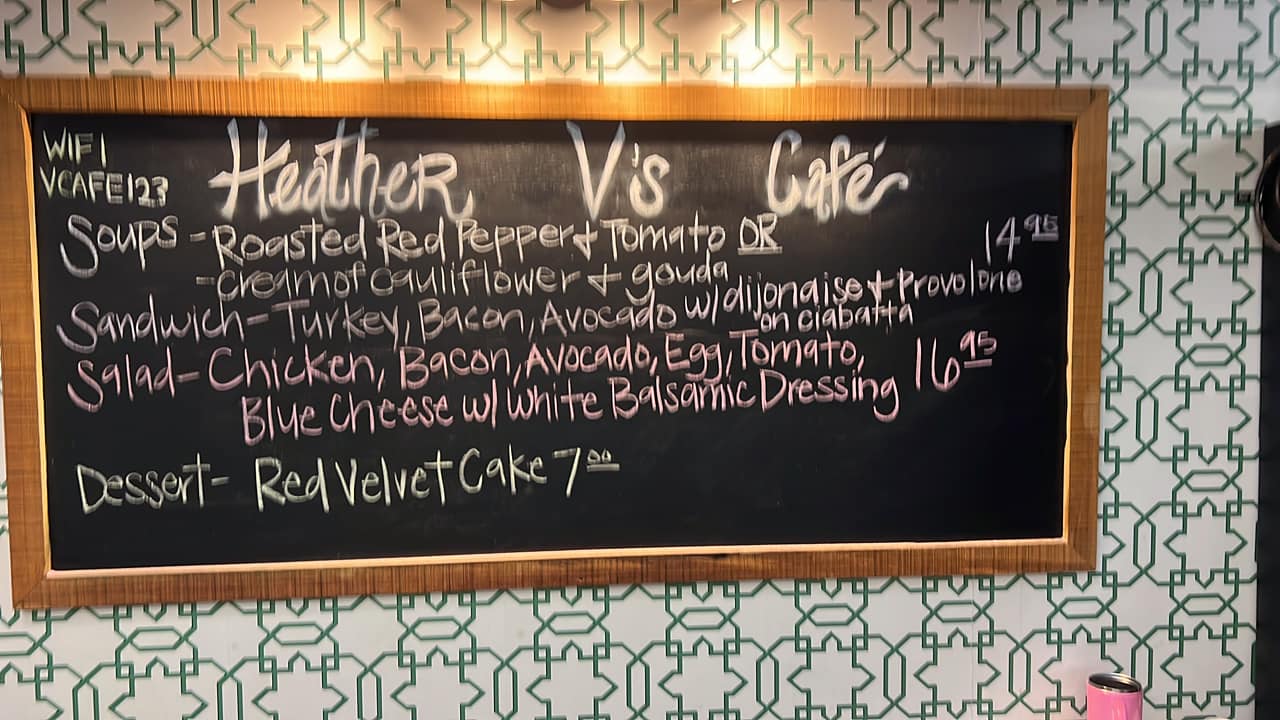 WIFI
VCAFE123
HeatheR V's Café
Soups - Roasted Red Pepper + Tomato OR 14 95
- cream of cauliflower + gouda
Sandwich - Turkey, Bacon, Avocado w/ dijonaise + Provolone
on ciabatta
Salad - Chicken, Bacon, Avocado, Egg, Tomato,
Blue Cheese w/ White Balsamic Dressing 16 95
Dessert - Red Velvet Cake 7 00